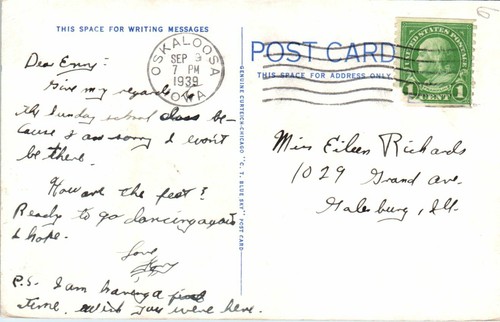 THIS SPACE FOR WRITING MESSAGES
Dear Eny:
Give my regards to
the Sunday school class be-
cause I am sorry I won't
be there.
How are the feet?
Ready to go dancing again
I hope.
Love
P.S. I am having a
time. Wish you were here.
GENUINE CURTEICH-CHICAGO "C. T. BLUE SKY" POST CARD
OSKALOOSA
SEP 3
7 PM
1939
IOWA
POST CARD
THIS SPACE FOR ADDRESS ONLY
UNITED STATES POSTAGE
1 CENT 1
Miss Eileen Richards
1029 Grand Ave.
Galesburg, Ill.